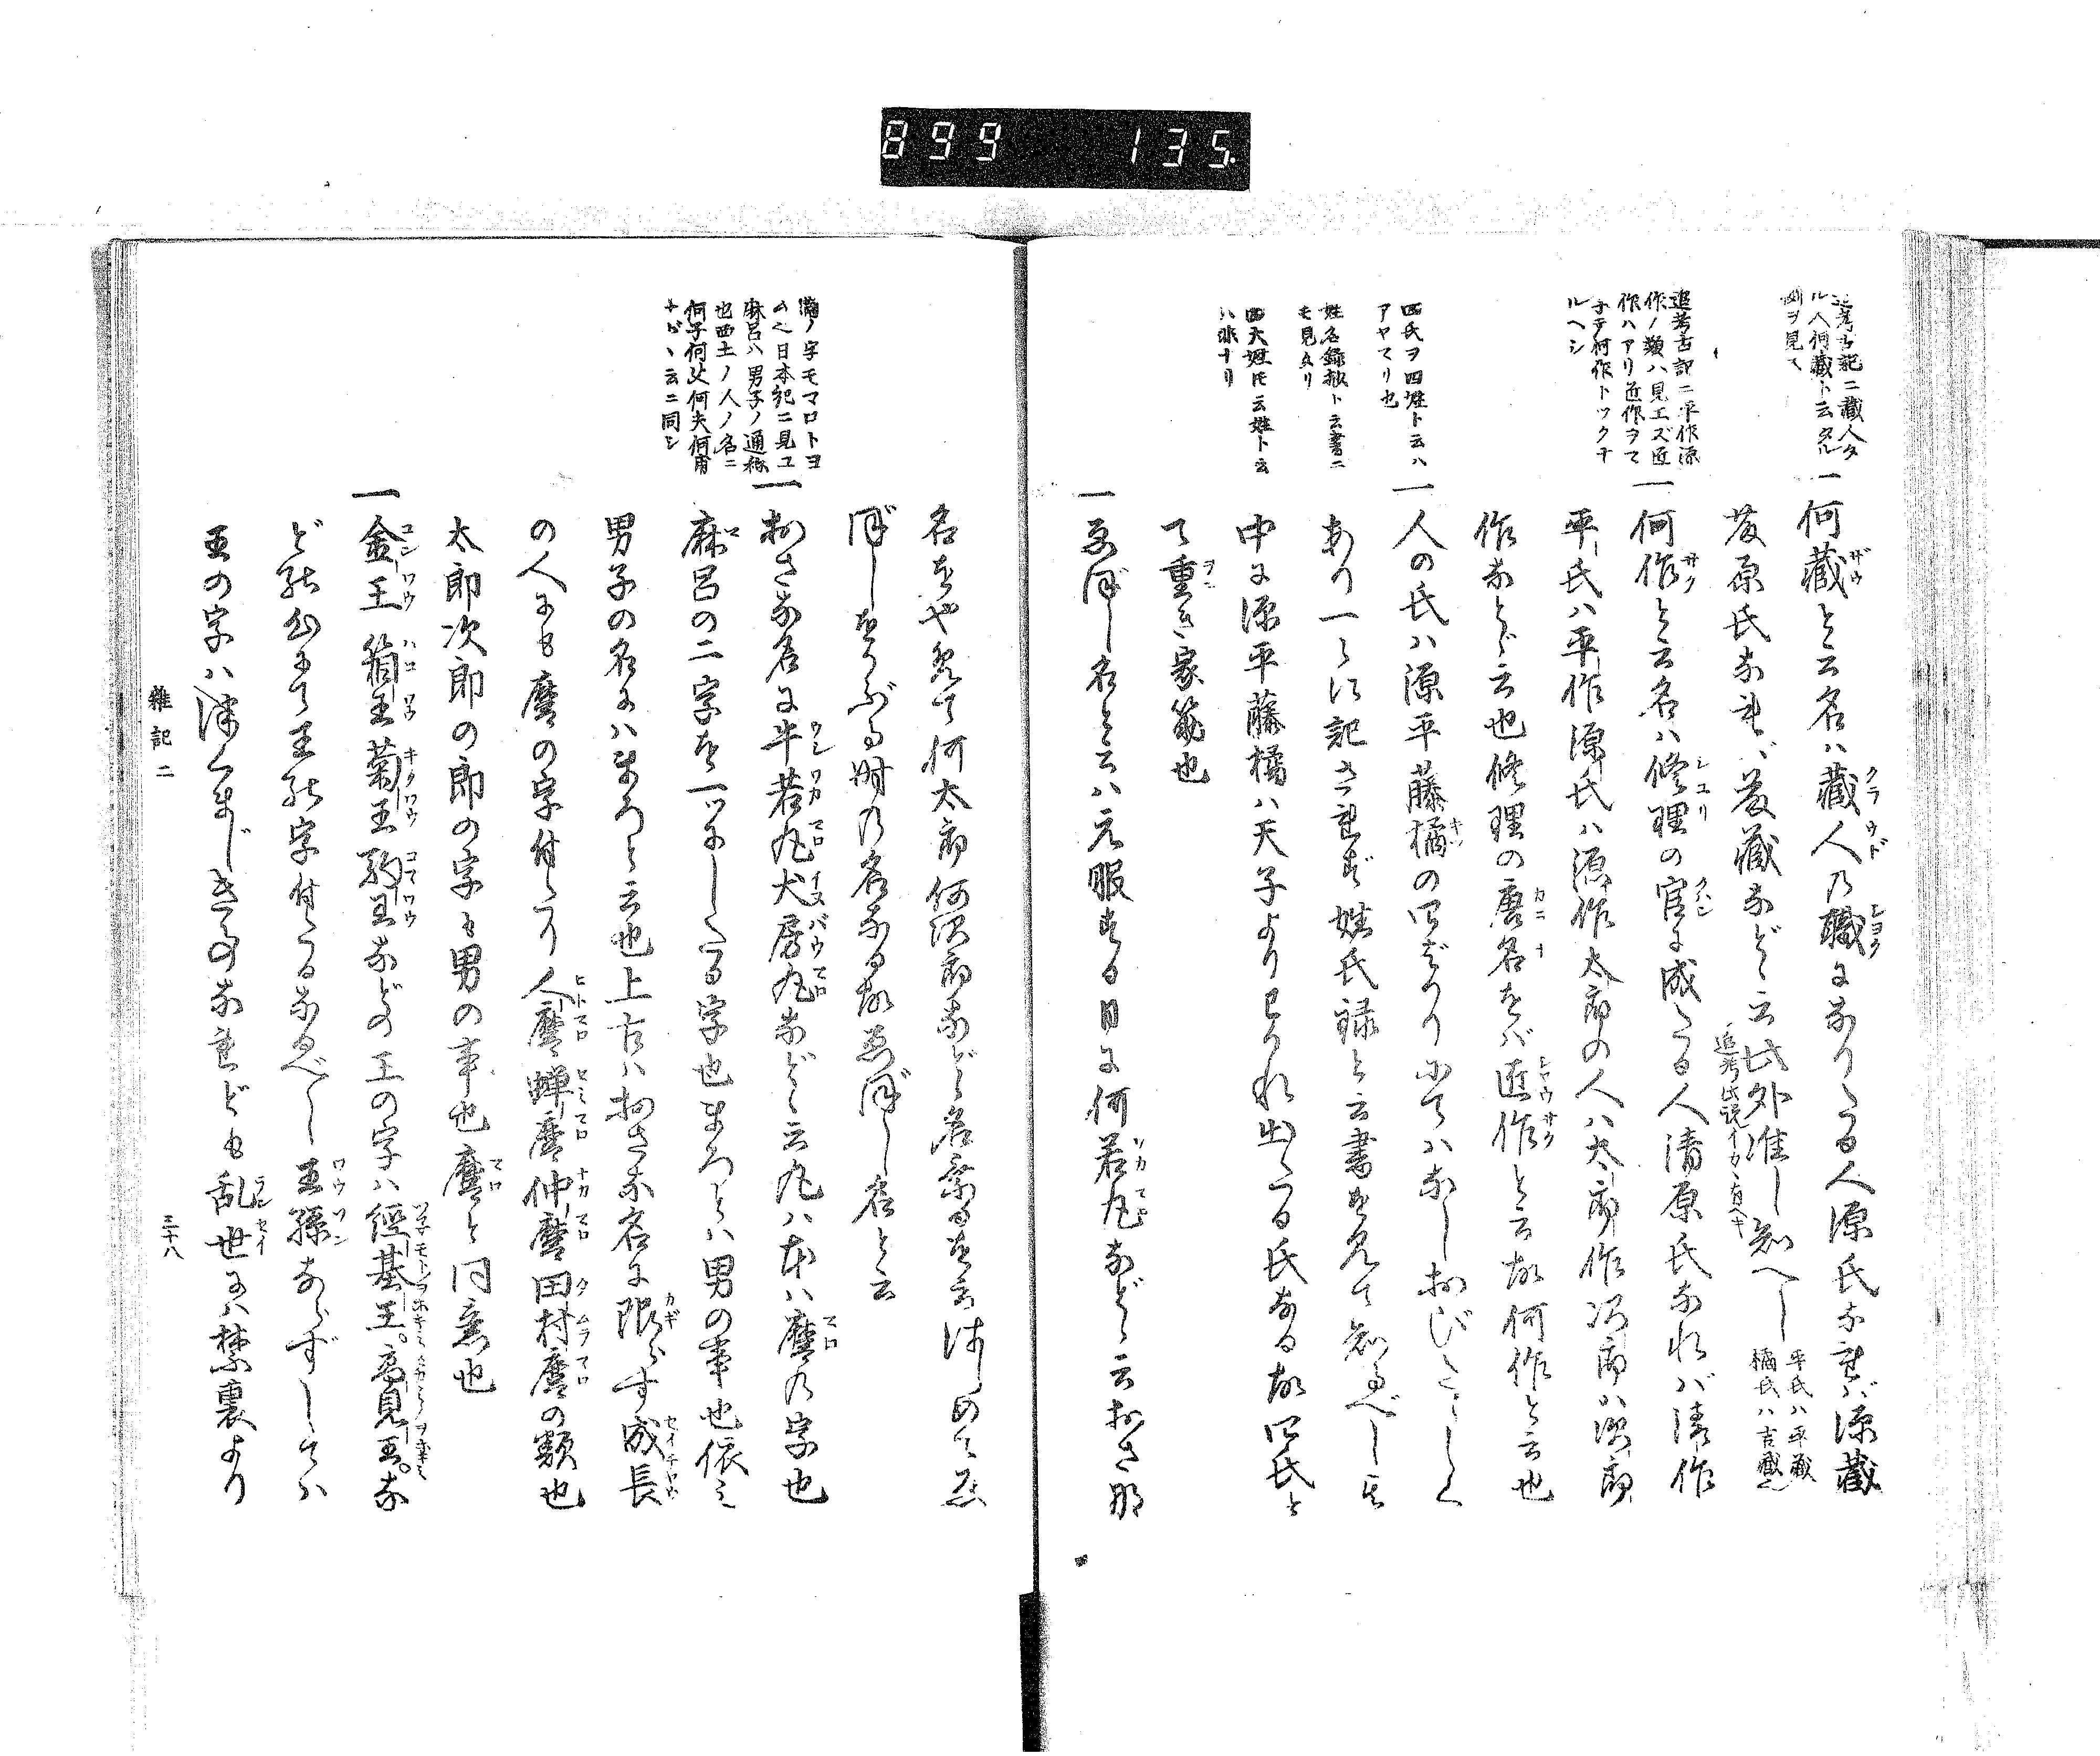 899 135.
追考古記ニ蔵人タ
ル人何蔵ト云タル
例ヲ見ス
一何蔵と云名ハ蔵人乃職になりたる人源氏なれバ源蔵
藤原氏なれバ藤蔵などゝ云此外准し知へし
平氏ハ平蔵
橘氏ハ吉蔵也
追考此説イカヽ有ヘキ
追考古記ニ平作源
作ノ類ハ見エズ匠
作ハアリ匠作ヲマ
子テ何作トツクナ
ルヘシ
一何作と云名ハ修理の官に成たる人清原氏なれバ清作
平氏ハ平作源氏ハ源作太郎の人ハ太郎作次郎ハ次郎
作なとゝ云也修理の唐名をバ匠作と云故何作と云也
四氏ヲ四姓ト云ハ
アヤマリ也
一人の氏ハ源平藤橘の四ばかりにてハなしおびたゝしく
姓名録抄ト云書ニ
モ見タリ
あり一々に記されず姓氏録と云書を見て知るべし其
四大姓氏云姓ト云
ハ非ナリ
中に源平藤橘ハ天子よりわかれ出たる氏なる故四氏と
て重き家筋也
一ゑぼし名と云ハ元服する日に何若丸などゝ云おさな
名をやめて何太郎何次郎などゝ名乗るを云はしめてゑ
ぼしをかぶる時の名なる故ゑぼし名と云
満ノ字モマロトヨ
ムヘ日本紀ニ見ユ
麻呂ハ男子ノ通称
也西土ノ人ノ名ニ
何子何父何夫何甫
ナドヽ云ニ同シ
一おさな名に牛若丸犬房丸などゝ云丸ハ本ハ麿乃字也
麻呂の二字を一ツにしたる字也まろとハ男の事也依之
男子の名にハまろと云也上古ハおさな名に限らす成長
の人にも麿の字付たり人麿蝉麿仲麿田村麿の類也
太郎次郎の郎の字も男の事也麿と同意也
一金王箱王菊王駒王などの王の字ハ經基王。高見王。な
王の字ハ憚くまじき事なれども乱世にハ禁裏より
雜記二
三十八